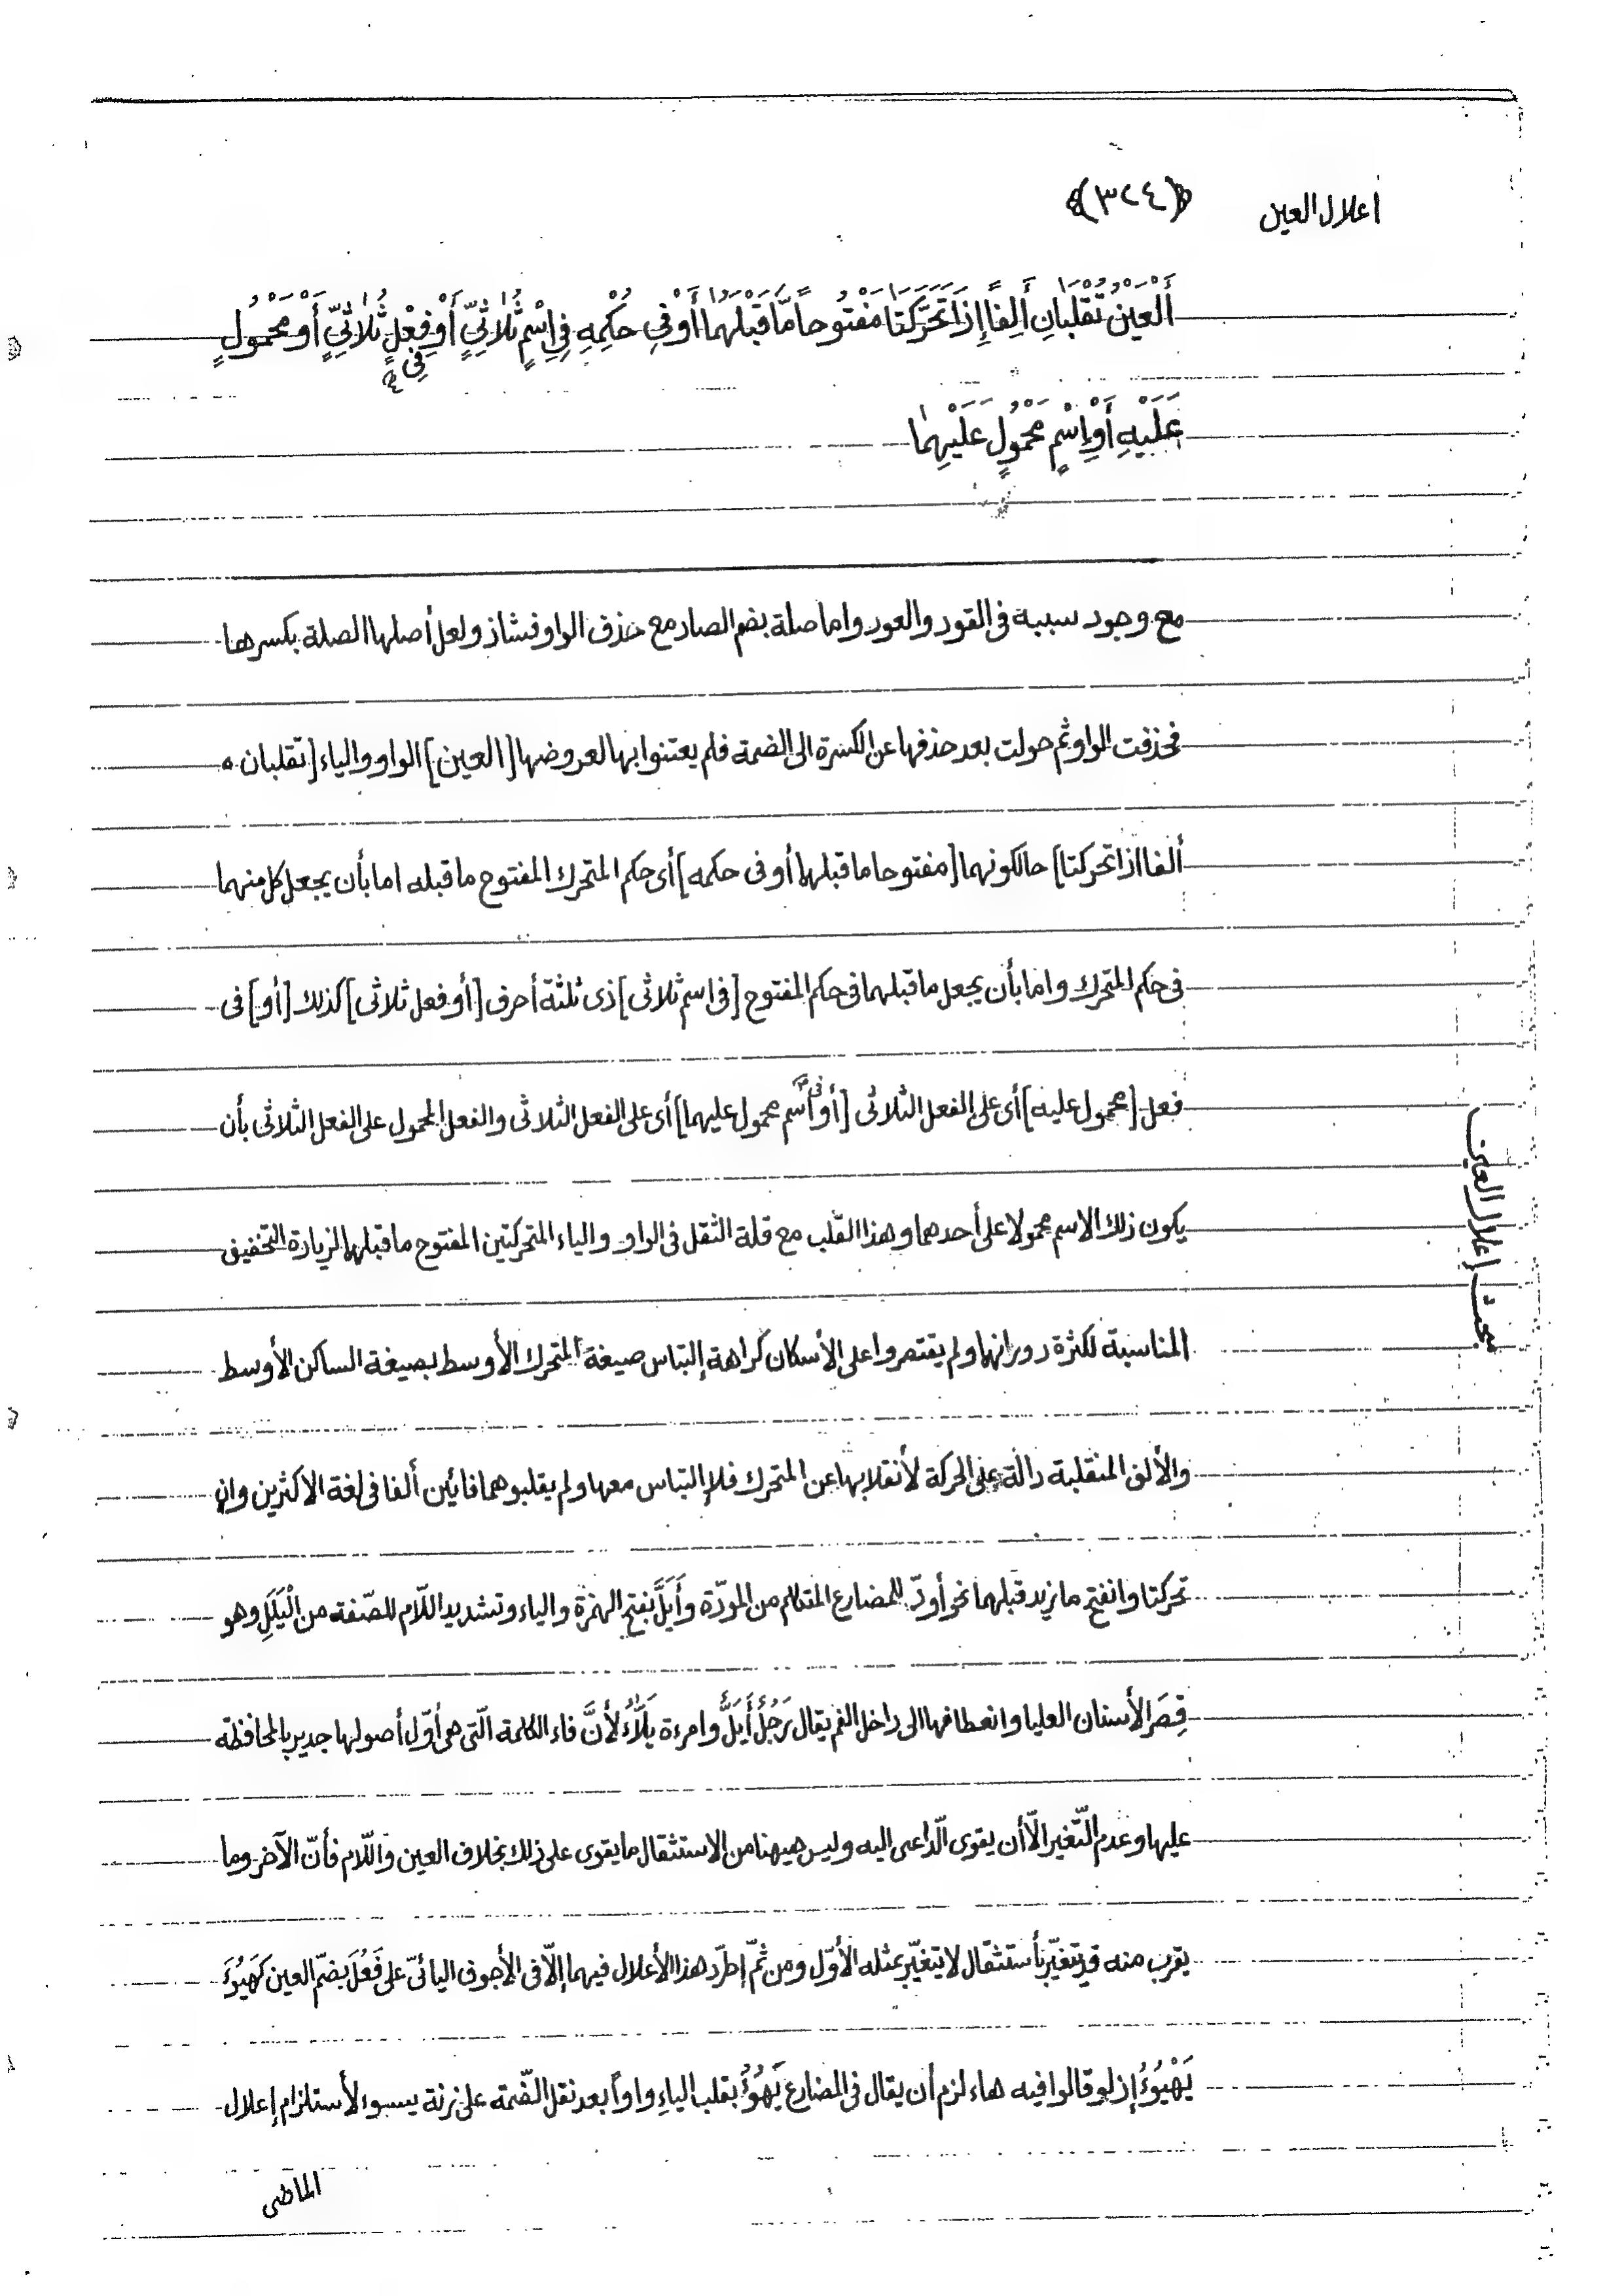 اعلال العين ﴿(٣٢٤)﴾
أَلْعَيْنُ تُقْلَبَانِ أَلِفًا إِذَا تَحَرَّكَتَا مَفْتُوحًا مَّا قَبْلَهُمَا أَوْ فِي حُكْمِهِ فِي اِسْمٍ ثُلَاثِيٍّ أَوْ فِعْلٍ ثُلَاثِيٍّ أَوْ مَحْمُولٍ
فِي
عَلَيْهِ أَوْ اِسْمٍ مَحْمُولٍ عَلَيْهِمَا
مع وجود سببه فى القود والعور واما صلة بضم الصاد مع حذف الواو فشاذ ولعل أصلها الصلة بكسرها
فحذفت الواو ثم حولت بعد حذفها عن الكسرة الى الضمة فلم يعتنوا بها لعروضها [العين] الواو والياء [تقلبان
ألفا اذا تحركتا] حالكونهما [مفتوحا ما قبلهما أو فى حكمه] أى حكم المتحرك المفتوح ما قبله اما بأن يجعل كل منهما
فى حكم المتحرك واما بأن يجعل ما قبلهما فى حكم المفتوح [فى اسم ثلاثى] ذى ثلثة أحرف [أو فعل ثلاثى] كذلك [أو] فى
فعل [محمول عليه] أى على الفعل الثلاثى [أو فى اسم محمول عليهما] أى على الفعل الثلاثى والفعل المحمول على الفعل الثلاثى بأن
يكون ذلك الاسم محمولا على أحدهما وهذا القلب مع قلة الثقل فى الواو والياء المتحركتين المفتوح ما قبلهما لزيادة التخفيف
مبحث إعلال العين
المناسبة لكثرة دورانها ولم يقتصروا على الأسكان كراهة إلتباس صيغة المتحرك الأوسط بصيغة الساكن الأوسط
والألف المنقلبة دالّة على الحركة لأنقلابها عن المتحرك فلا إلتباس معها ولم يقلبوهما فائين ألفا فى لغة الاكثرين وان
تحركتا وانفتح ما زيد قبلهما نحو أودّ للمضارع المتكلم من المودّة وأَيَلَّ بفتح الهمزة والياء وتشديد اللّام للصّفة من الْيَلَلِ وهو
قِصَر الأسنان العليا وانعطافها الى داخل الفم يقال رَجُلٌ أَيَلُّ وامرءة يَلَّاءُ لأنَّ فاء الكلمة الّتى هى أوّل أصولها جدير بالمحافظة
عليها وعدم التّغير الّا أن يقوى الّداعى اليه وليس هيهنا من الاستثقال ما يقوى على ذلك بخلاف العين واللّام فأنّ الآخر وما
يقرب منه قد يتغيّر بأستثقال لا يتغيّر بمثله الأوّل ومن ثمّ إطرّد هذا الأعلال فيهما إلّا فى الأجوف اليائىّ على فَعُلَ بضمّ العين كَهَيُؤَ
يَهْيُؤُ إذ لو قالوا فيه هاء لزم أن يقال فى المضارع يَهُؤُ بقلب الياء واواً بعد نقل الضّمة على زنة يسوء لأستلزام إعلال
الماضى